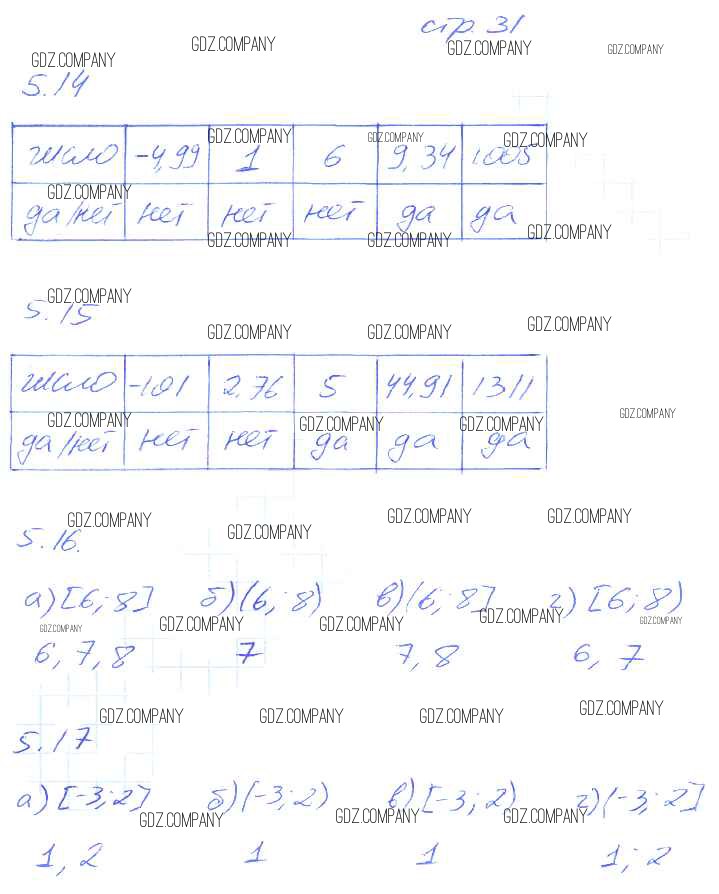 стр. 31
GDZ.COMPANY GDZ.COMPANY GDZ.COMPANY GDZ.COMPANY
5.14
GDZ.COMPANY GDZ.COMPANY GDZ.COMPANY
число -4,99 1 6 9,34 1005
GDZ.COMPANY
да/нет нет нет нет да да
GDZ.COMPANY GDZ.COMPANY GDZ.COMPANY
GDZ.COMPANY
5.15
GDZ.COMPANY GDZ.COMPANY GDZ.COMPANY
число -101 2,76 5 44,91 1311
GDZ.COMPANY GDZ.COMPANY GDZ.COMPANY GDZ.COMPANY
да/нет нет нет да да да
GDZ.COMPANY GDZ.COMPANY GDZ.COMPANY GDZ.COMPANY
5.16.
а) [6; 8] б) (6; 8) в) (6; 8] г) [6; 8)
GDZ.COMPANY GDZ.COMPANY GDZ.COMPANY GDZ.COMPANY GDZ.COMPANY
6, 7, 8 7 7, 8 6, 7
GDZ.COMPANY GDZ.COMPANY GDZ.COMPANY GDZ.COMPANY
5.17
а) [-3; 2] б) (-3; 2) в) [-3; 2) г) (-3; 2]
GDZ.COMPANY GDZ.COMPANY GDZ.COMPANY
1, 2 1 1 1; 2